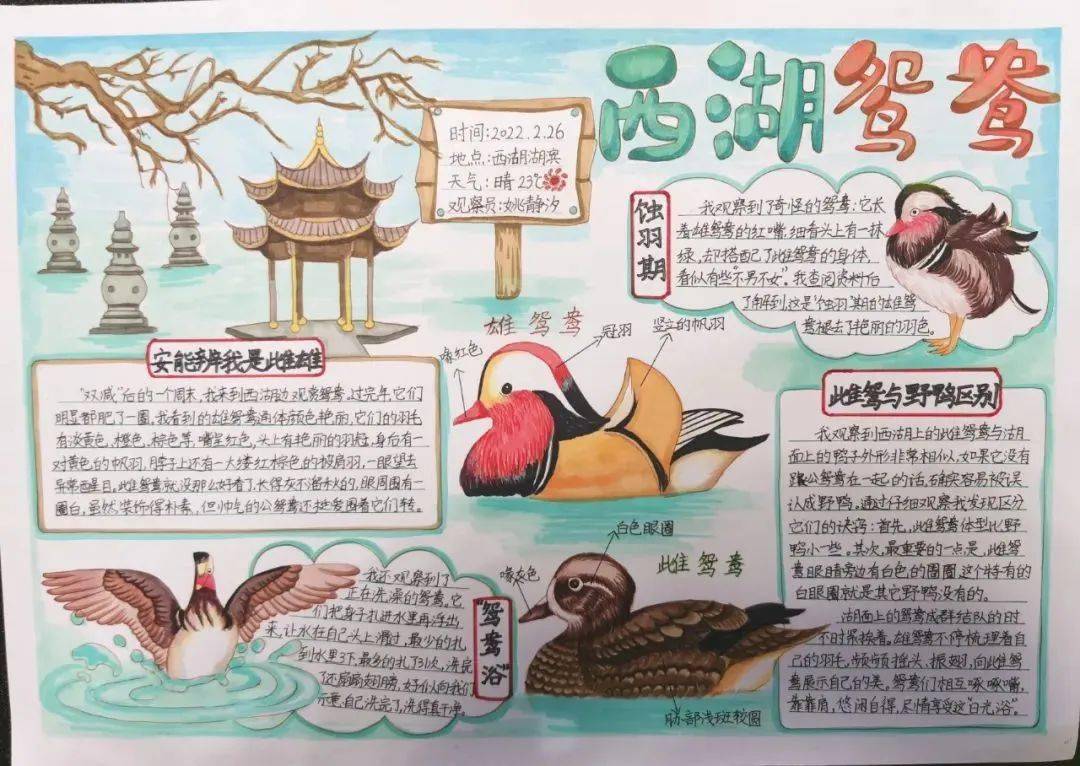 西湖鸳鸯
时间:2022.2.26
地点:西湖湖宾
天气:晴 23℃
观察员:姚静汐
蚀羽期
我观察到了奇怪的鸳鸯:它长
着雄鸳鸯的红嘴,细看头上有一抹
绿,却搭配了雌鸳鸯的身体,
看似有些“不男不女”。我查阅资料后
了解到,这是“蚀羽”期的雄鸳
鸯褪去了艳丽的羽色。
安能辨我是雌雄
“双减”后的一个周末,我来到西湖边观赏鸳鸯,过完年,它们
明显都肥了一圈,我看到的雄鸳鸯通体颜色艳丽,它们的羽毛
有淡黄色,橙色,棕色等,嘴呈红色,头上有艳丽的羽冠,身后有一
对黄色的帆羽,脖子上还有一大缕红棕色的披肩羽,一眼望去
异常醒目,雌鸳鸯就没那么好看了,长得灰不溜秋的,眼周围有一
圈白,虽然装饰得朴素,但帅气的公鸳鸯还挺爱围着它们转。
雄鸳鸯
喙红色
冠羽
竖立的帆羽
雌鸳与野鸭区别
我观察到西湖上的雌鸳鸯与湖
面上的鸭子外形非常相似,如果它没有
跟公鸳鸯在一起的话,确实容易被误
认成野鸭,通过仔细观察我发现区分
它们的诀窍:首先,雌鸳鸯体型比野
鸭小一些。其次,最重要的一点是,雌鸳
鸯眼睛旁边有白色的圈圈,这个特有的
白眼圈就是其它野鸭没有的。
湖面上的鸳鸯成群结队的时
不时紧挨着。雄鸳鸯不停梳理着自
己的羽毛,频频摇头、振翅,向雌鸳
鸯展示自己的美。鸳鸯们相互啄啄嘴,
靠靠肩,悠闲自得,尽情享受这“日光浴”。
“鸳鸯浴”
我还观察到了
正在洗澡的鸳鸯。它
们把身子扎进水里再浮出
来,让水在自己头上滑过,最少的扎
到水里3下,最多的扎了31次,洗完
了还扇扇翅膀,好似向我们
示意,自己洗完了,洗得真干净。
雌鸳鸯
白色眼圈
喙灰色
胁部浅斑较圆